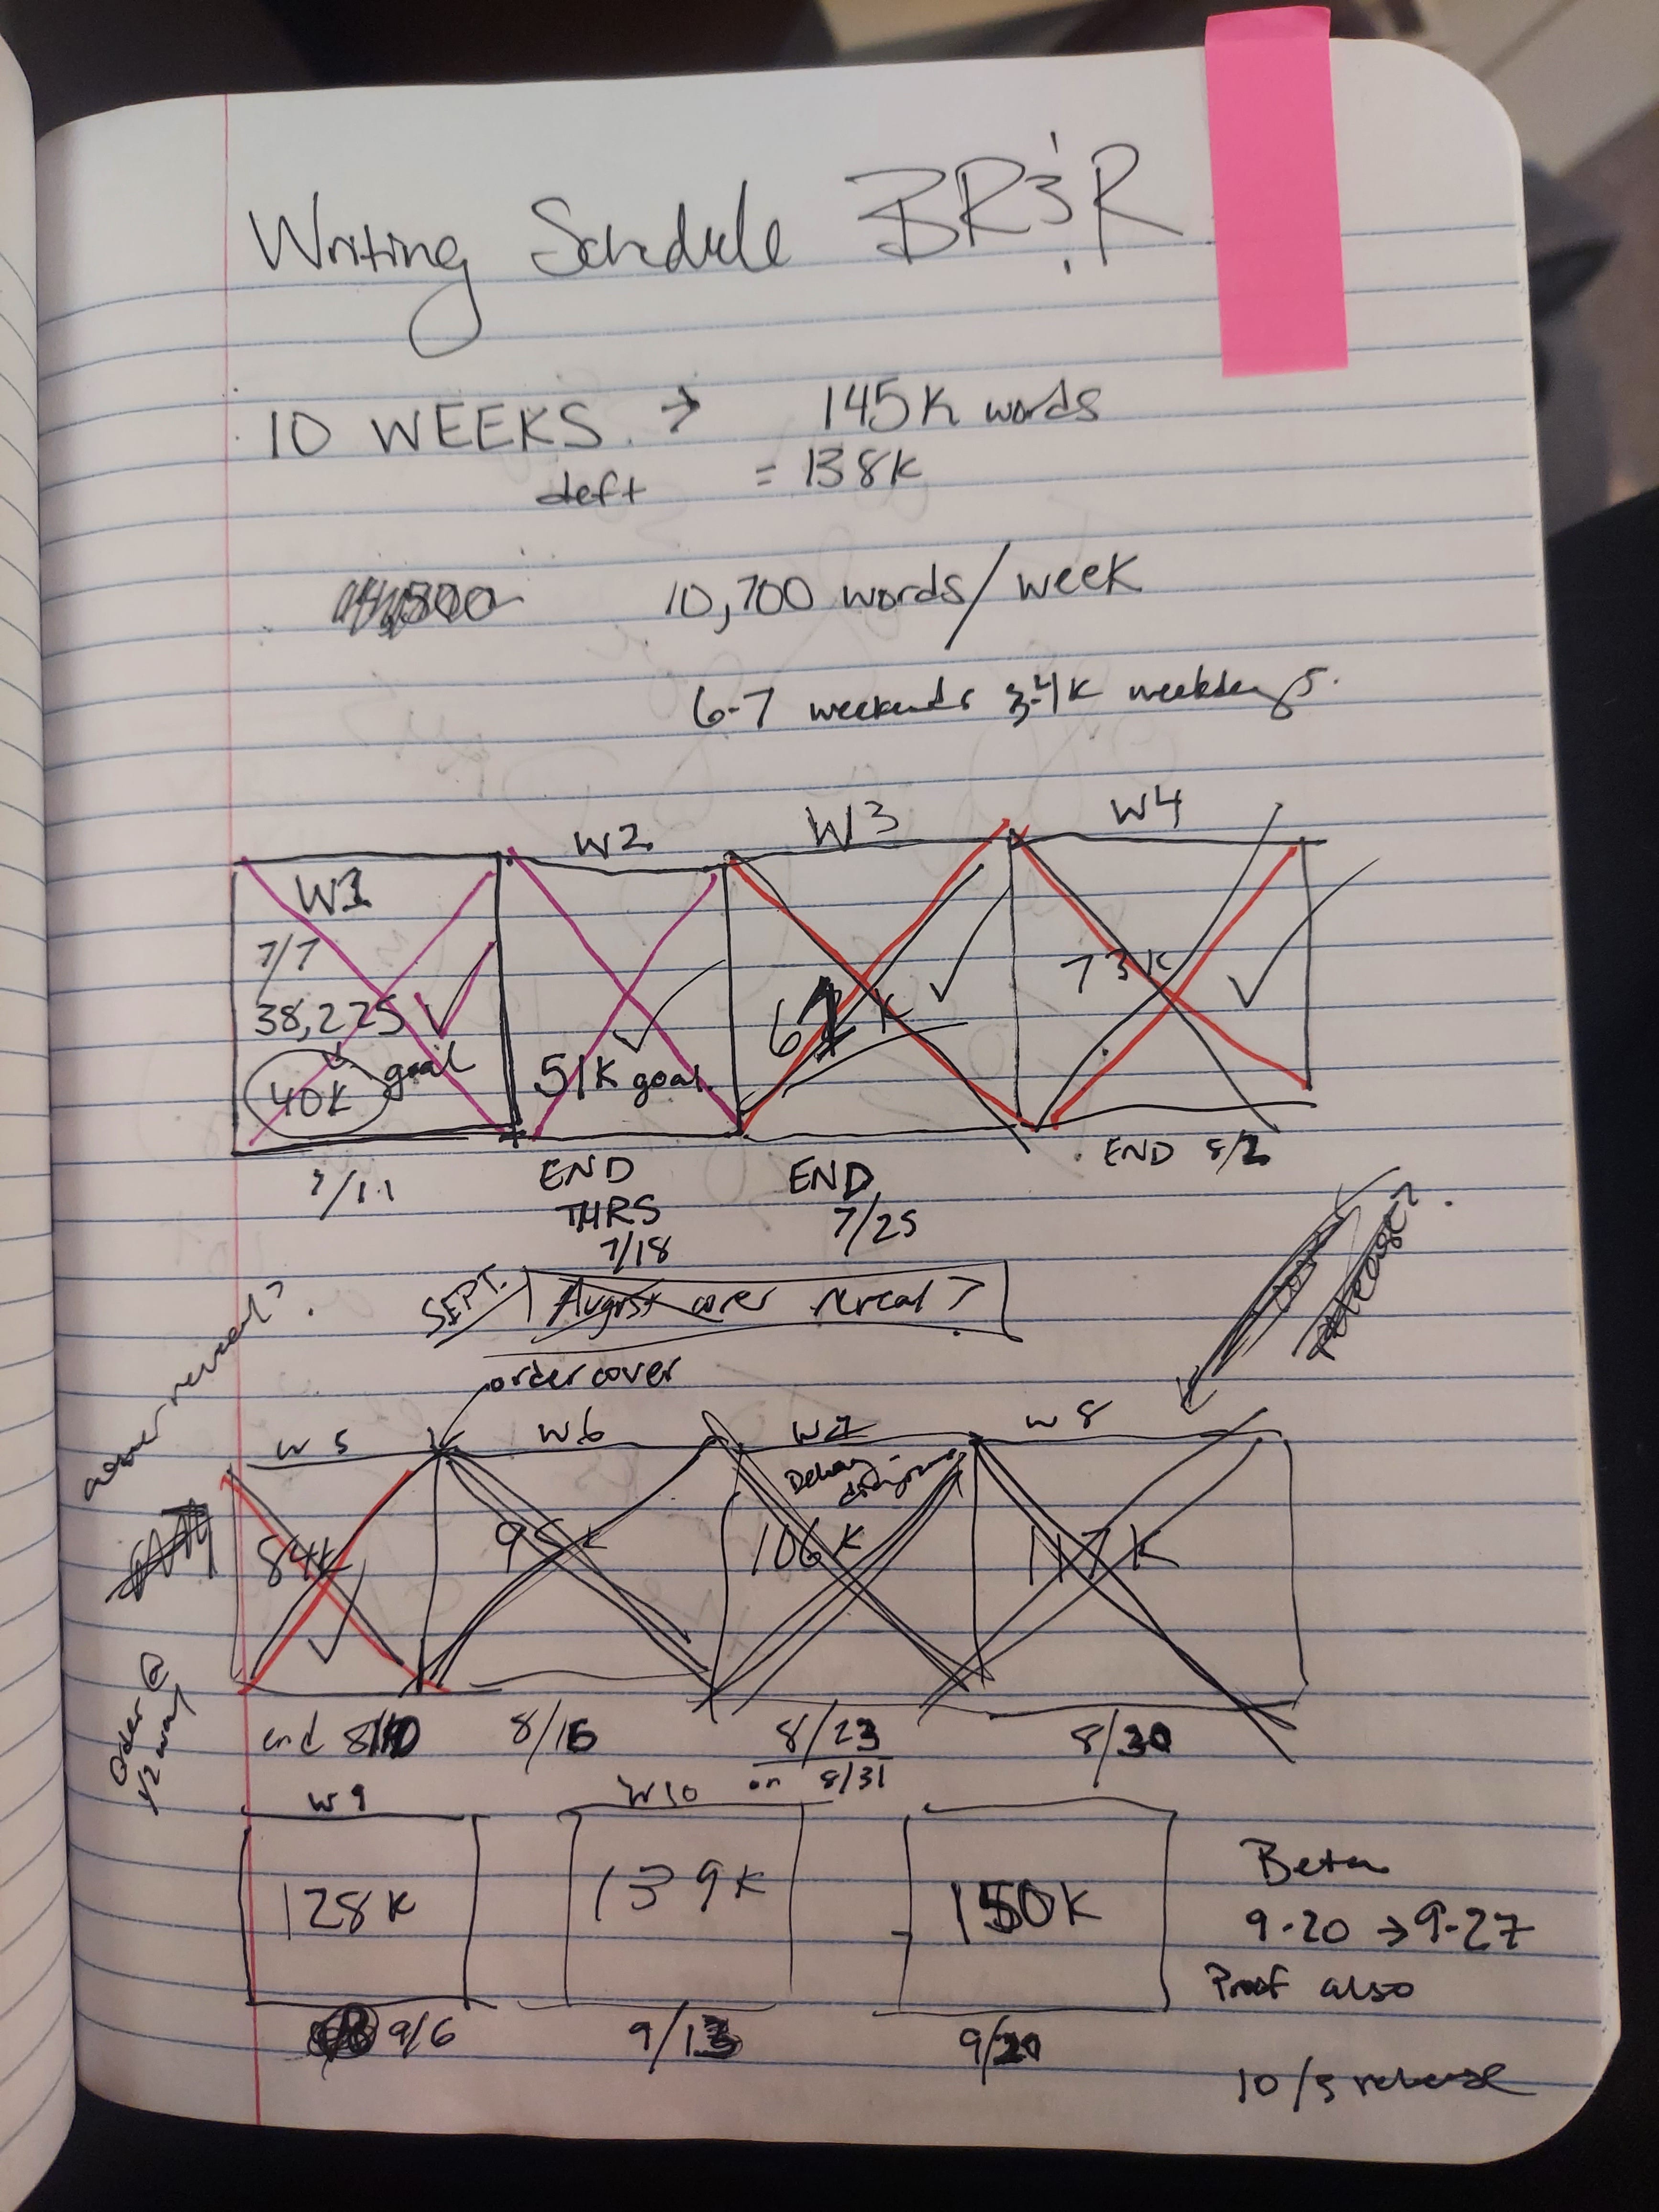 Writing Schedule BR&R
10 WEEKS → 145K words
deft = 138K
10,700 words/week
6-7 weekends 3-4K weekdays.
W1
W2
W3
W4
7/7
38,225
40K goal
51K goal
K
73K
7/11
END
THRS
7/18
END
7/25
END 8/2
SEPT.
August cover reveal?
release?
cover reveal?
order cover
W5
W6
W7
W8
84K
95K
106K
117K
Order @
1/2 way
end 8/10
8/16
8/23
on 8/31
8/30
W9
W10
128K
139K
150K
Beta
9-20 → 9-27
Proof also
9/6
9/13
9/20
10/5 release